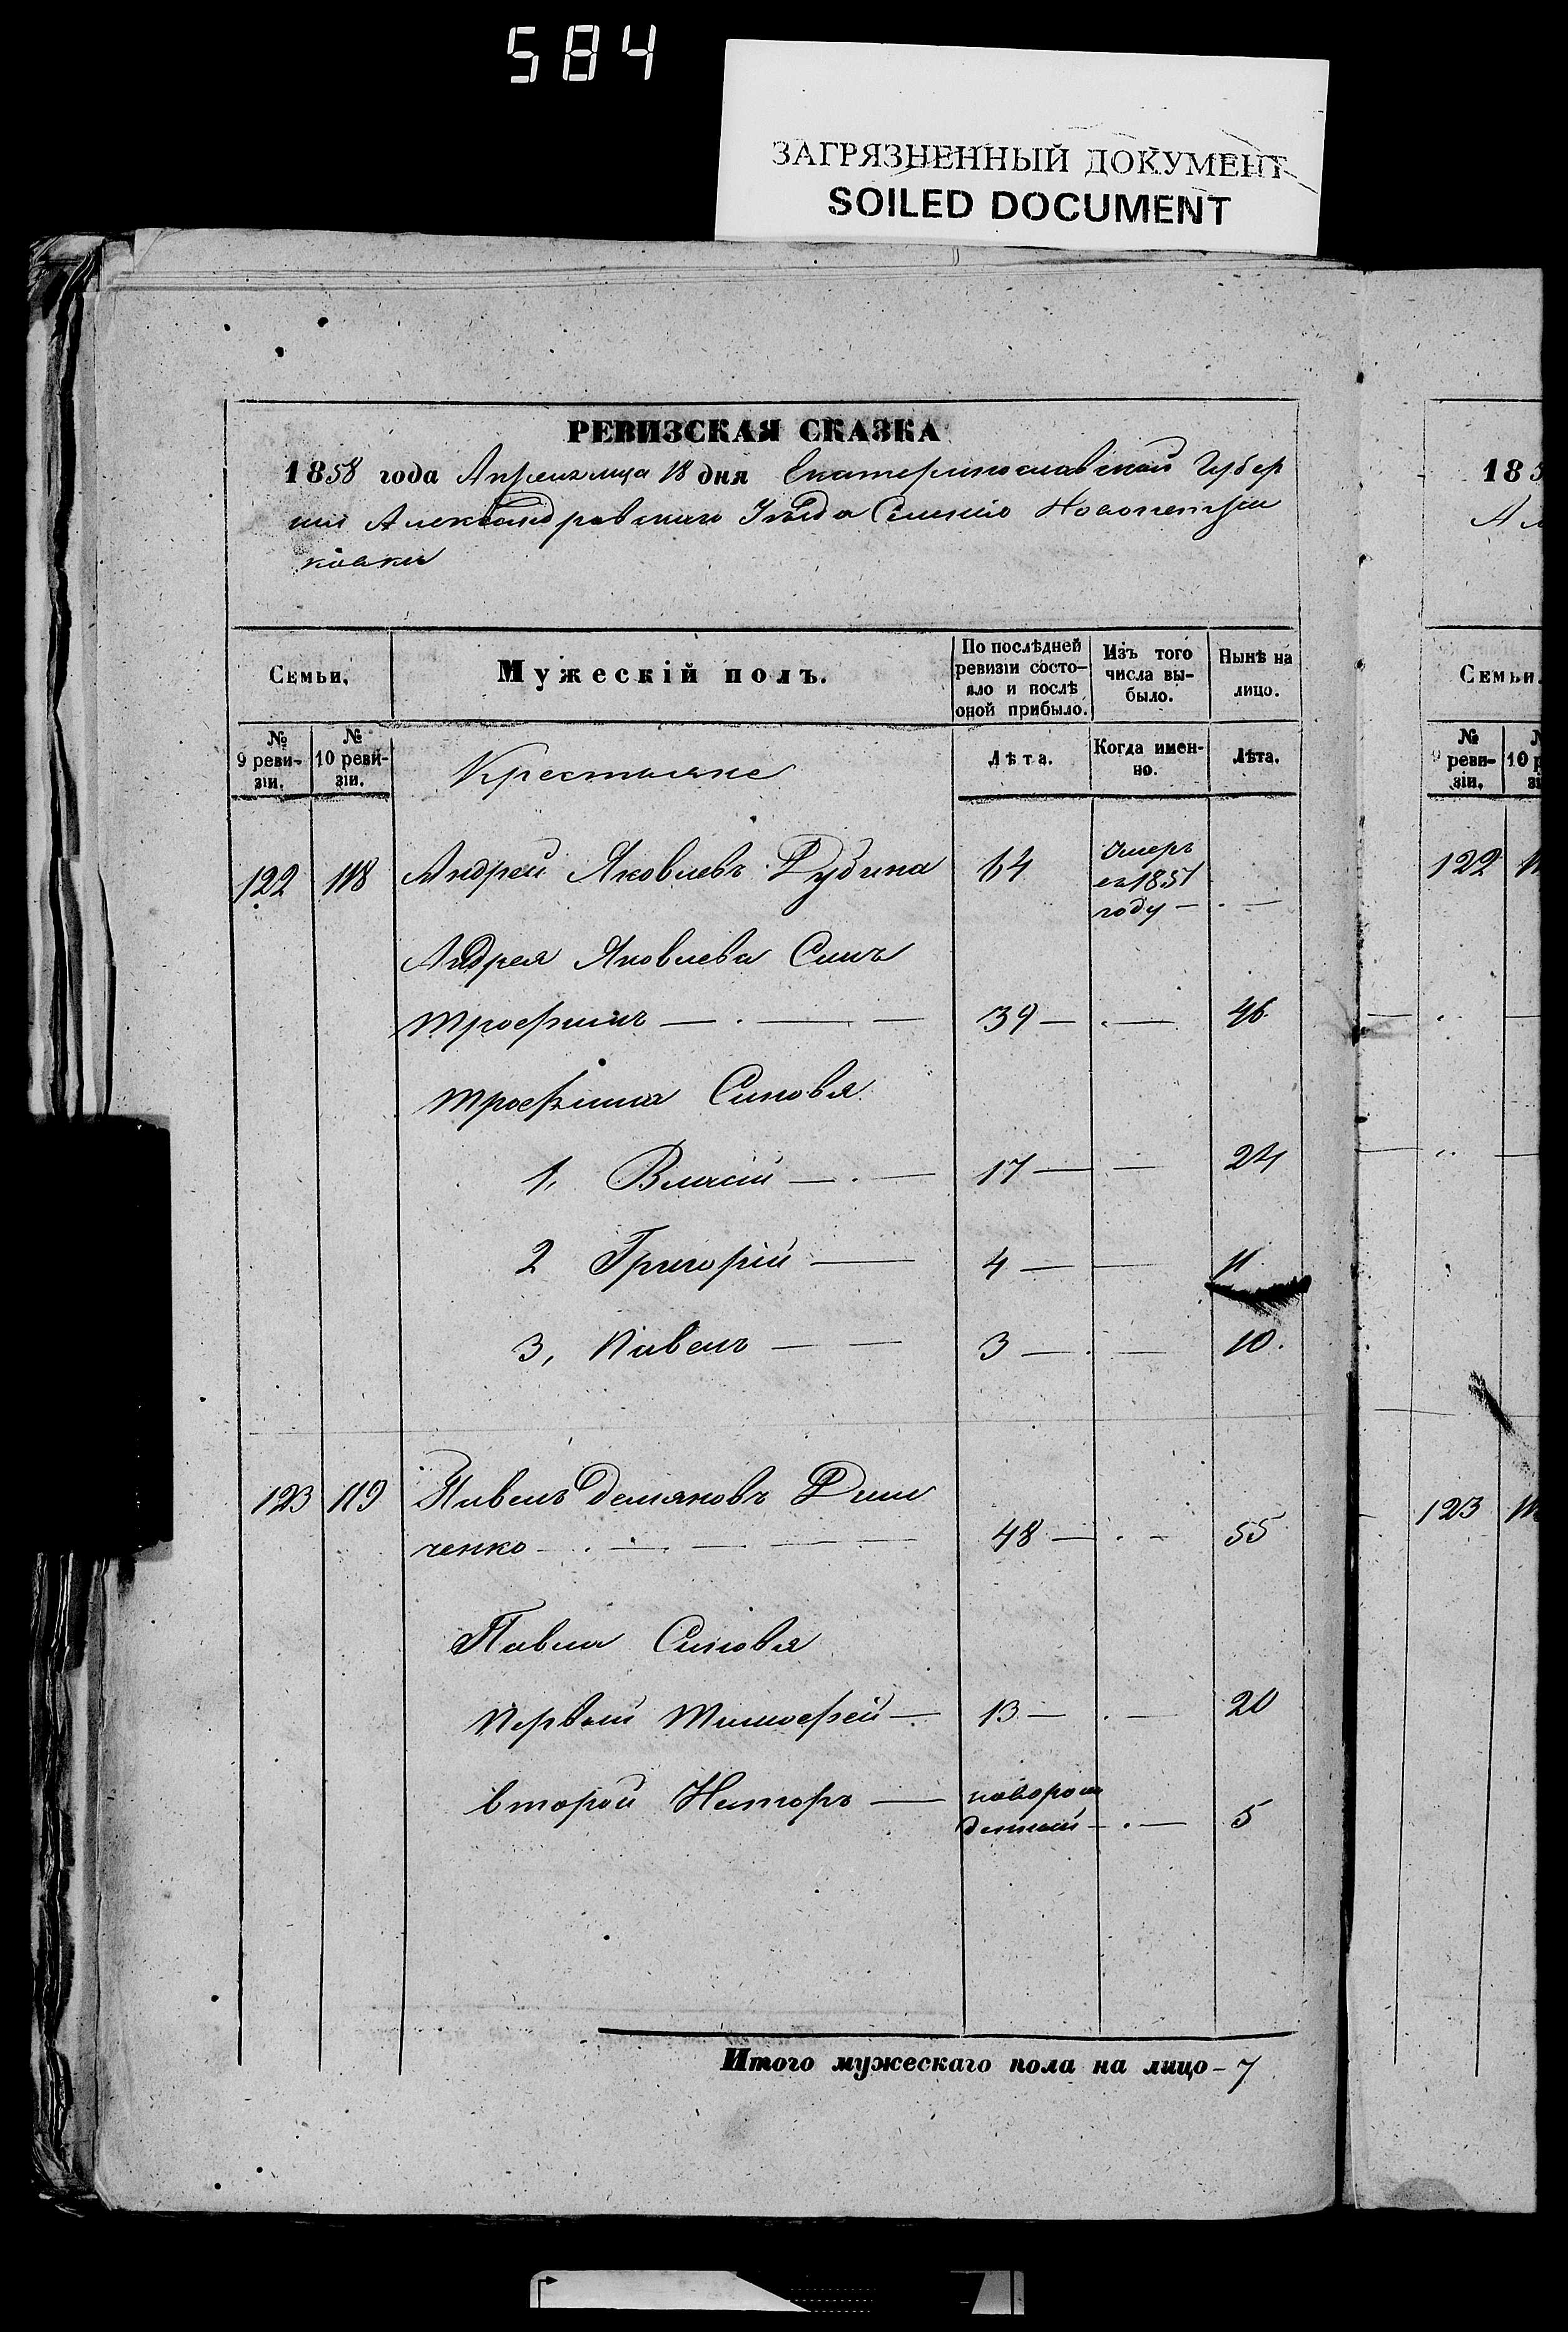 584
ЗАГРЯЗНЕННЫЙ ДОКУМЕНТ
SOILED DOCUMENT
РЕВИЗСКАЯ СКАЗКА
1858 года Апреля мца 18 дня Екатеринославской Губер
нии Александровскаго Уезда Селенiю Новопетри
ковки
Семьи.
Мужескiй полъ.
По послѣдней ревизiи состо-
яло и послѣ оной прибыло.
Изъ того числа вы-
было.
Нынѣ на лицо.
№ 9 реви-
зiи.
№ 10 реви-
зiи.
Крестьяне
Лѣта.
Когда имен-
но.
Лѣта.
122 118 Андрей Яковлевъ Дубина 64 Умеръ
въ 1851
году — . —
Андрея Яковлева Синъ
Трофимъ — . — — 39 — . — 46
Трофима Синовя
1, Власiй — . — 17 — — 24
2 Григорiй — 4 — — 11
3, Павелъ — — 3 — . — 10.
123 119 Павелъ Демяновъ Дим
ченко — . — . — — — 48 — . — 55
Павла Синовя
Первый Тимофей — 13 — . — 20
второй Несторъ — новорож
денный — . — 5
Итого мужескаго пола на лицо — 7
185
Семьи.
№ 9 реви-
зiи.
122
123